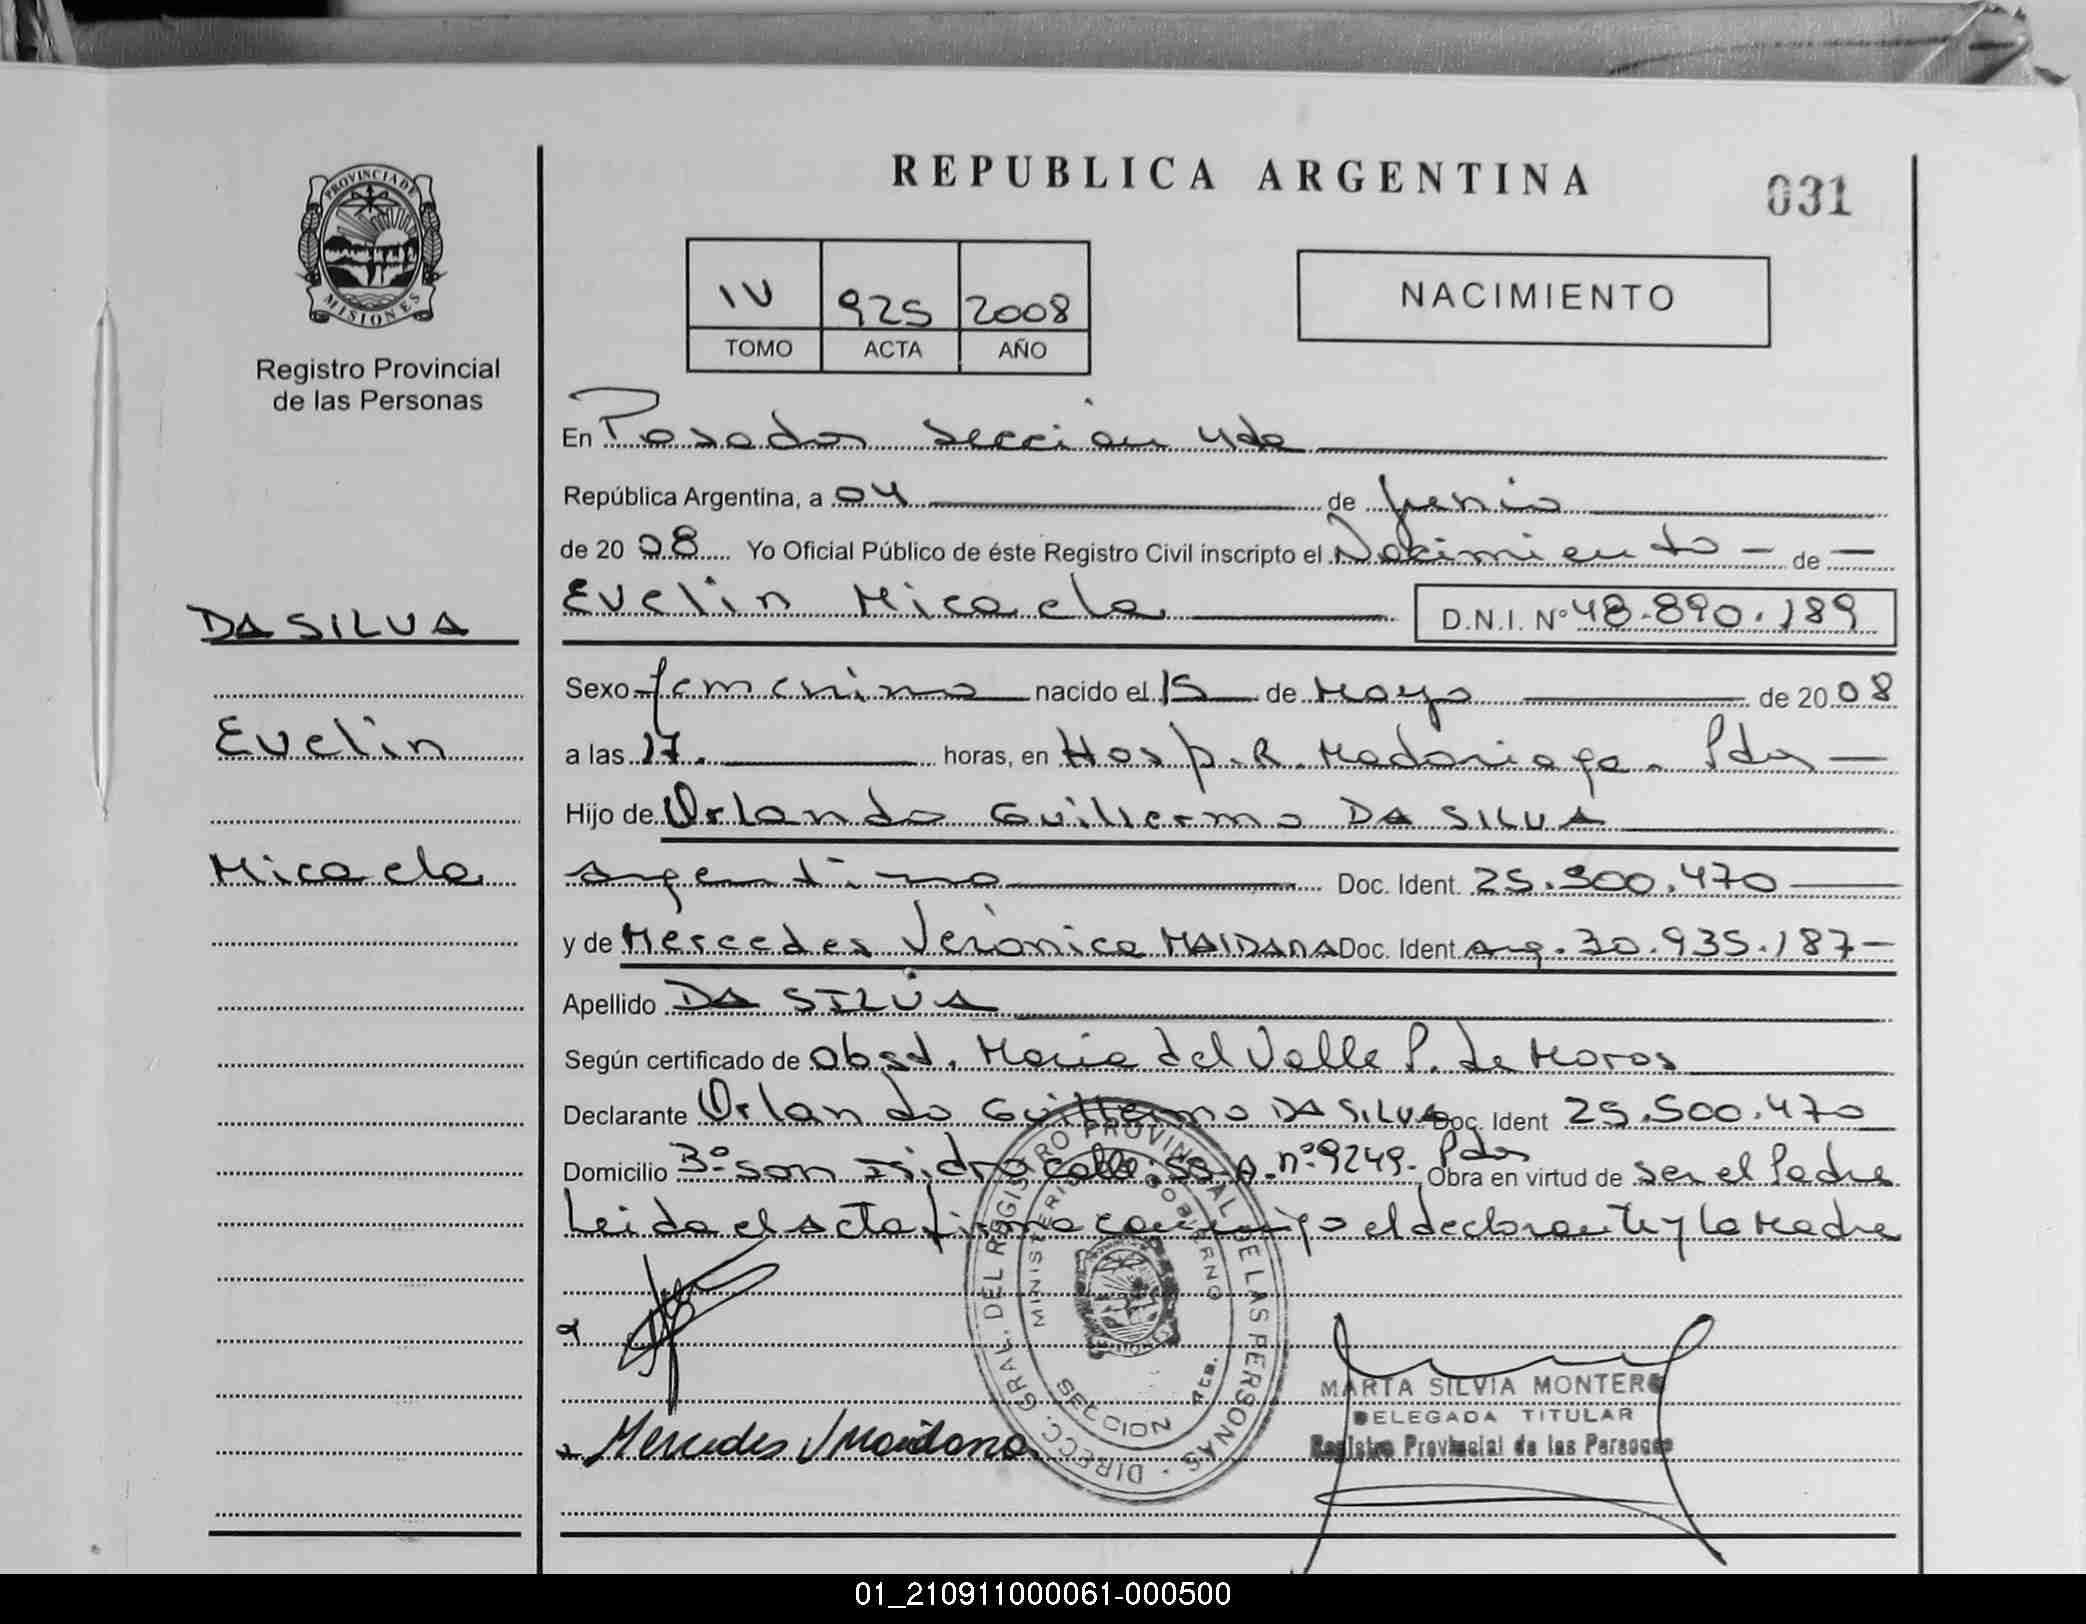 REPUBLICA ARGENTINA
031
PROVINCIA DE
MISIONES
Registro Provincial
de las Personas
IV 925 2008
TOMO ACTA AÑO
NACIMIENTO
En Posadas Sección 4da
República Argentina, a 04 de Junio
de 20 08 Yo Oficial Público de éste Registro Civil inscripto el Nacimiento - de -
Evelin Micaela D.N.I. Nº 48.890.189
DA SILVA
Evelin
Micaela
Sexo femenino nacido el 15 de Mayo de 20 08
a las 17. horas, en Hosp. R. Madariaga. Pdas
Hijo de Orlando Guillermo DA SILVA
Argentino Doc. Ident. 25.500.470
y de Mercedes Verónica MAIDANA Doc. Ident. Arg. 30.935.187
Apellido DA SILVA
Según certificado de Obst. Maria del Valle P. de Moros
Declarante Orlando Guillermo DA SILVA Doc. Ident 25.500.470
Domicilio Bº San Isidro calle 58-A. nº 9249. Pdas Obra en virtud de ser el Padre
Leida el Acta firma conmigo el declarante y la Madre
DIRECC. GRAL. DEL REGISTRO PROVINCIAL DE LAS PERSONAS
MINISTERIO GOBIERNO
SECCION 4ta.
MARTA SILVIA MONTERO
DELEGADA TITULAR
Registro Provincial de las Personas
Mercedes V Maidana
01_210911000061-000500